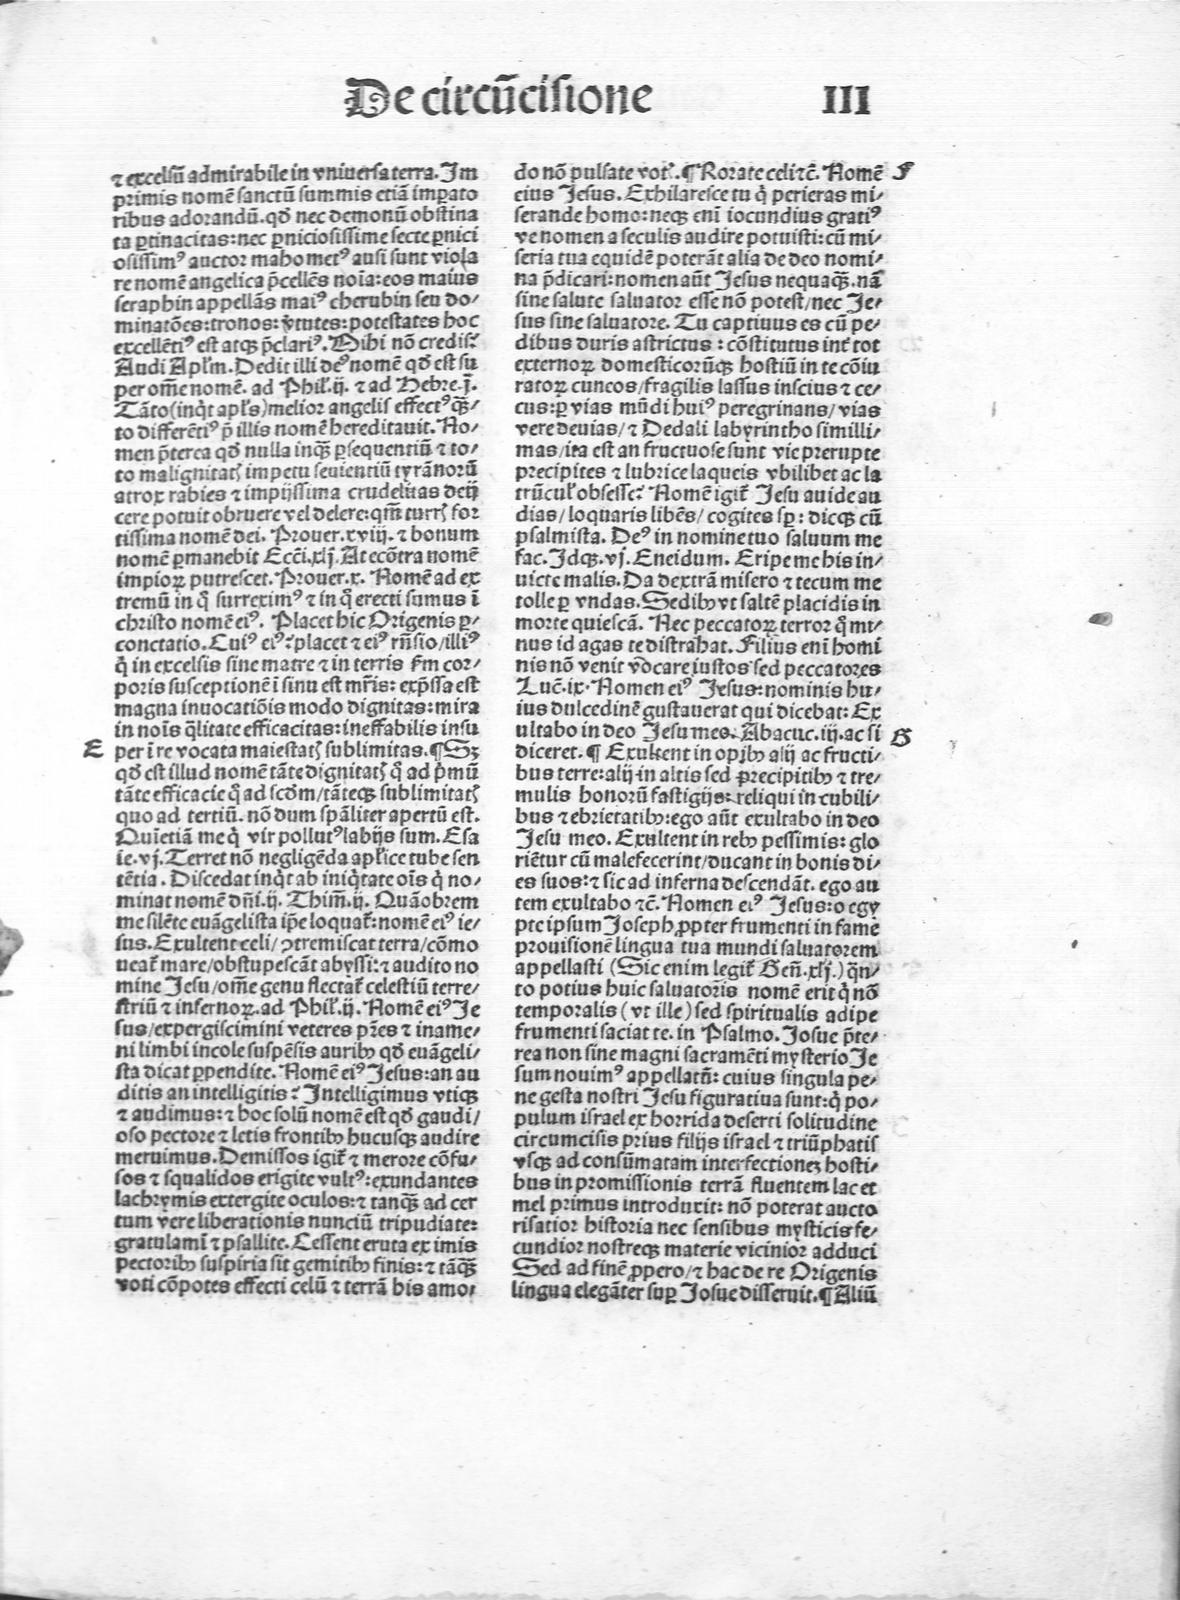 De circũcisione III
⁊ excelsũ admirabile in vniuersa terra. Im
primis nomẽ sanctũ summis etiã impato
ribus adorandũ. qđ nec demonũ obstina
ta ꝑtinacitas: nec ꝑniciosissime secte ꝑnici
osissimꝰ auctor mahometꝰ ausi sunt viola
re nomẽ angelica p̃cellẽs noĩa: eos maius
seraphin appellãs maiꝰ cherubin seu do/
minatões: tronos: v̓tutes: potestates hoc
excellẽtiꝰ est atqꝫ p̃clariꝰ. Mihi nõ credis?
Audi Apl̃m. Dedit illi deꝰ nomẽ qđ est su
per om̃e nomẽ. ad Phil̓. ij. ⁊ ad Hebre. j̃.
Tãto (inq̓t apl̓s) melior angelis effectꝰ qꝫ̃/
to differẽtiꝰ p̃ illis nomẽ hereditauit. No/
men p̃terea qđ nulla inqꝫ̃ ꝑsequentiũ ⁊ to/
to malignitatꝭ impetu seuientiũ tyrãnorũ
atrox rabies ⁊ impijssima crudelitas deij
cere potuit obruere vel delere: qm̃ turrꝭ for
tissima nomẽ dei. Prouer. xviij. ⁊ bonum
nomẽ ꝑmanebit Ecc̃i. xlj. At ecõtra nomẽ
impioꝝ putrescet. Prouer. x. Nomẽ ad ex
tremũ in q̊ surreximꝰ ⁊ in q̊ erecti sumus ĩ
christo nomẽ eiꝰ. Placet hic Origenis ꝑ/
conctatio. Cuiꝰ eiꝰ? placet ⁊ eiꝰ rñsio/ illiꝰ
q̓ in excelsis sine matre ⁊ in terris fm̃ cor/
poris susceptionẽ ĩ sinu est mr̃is: exp̃ssa est
magna inuocatiõis modo dignitas: mira
in noĩs q̃litate efficacitas: ineffabilis insu
E per ĩ re vocata maiestatꝭ sublimitas. ¶ Sꝫ
qđ est illud nomẽ tãte dignitatꝭ q̊ ad p̓mũ
tãte efficacie q̊ ad scđm/ tãteqꝫ sublimitatꝭ
quo ad tertiũ. nõ dum sp̃aliter apertũ est.
Quĩetiã me q̓ vir pollutꝰ labijs sum. Esa
ie. vj. Terret nõ negligẽda apl̓ice tube sen
tẽtia. Discedat inq̓t ab iniq̓tate oĩs q̓ no/
minat nomẽ dñi. ij. Thim̃. ij. Quãobrem
me silẽte euãgelista ip̃e loquat̃: nomẽ eiꝰ ie/
sus. Exultent celi/ ꝯtremiscat terra/ cõmo
ueat̃ mare/ obstupescãt abyssi: ⁊ audito no
mine Jesu/ om̃e genu flectat̃ celestiũ terre/
striũ ⁊ infernoꝝ. ad Phil̓. ij. Nomẽ eiꝰ Je
sus/ expergiscimini veteres pr̃es ⁊ iname/
ni limbi incole suspẽsis auribꝰ qđ euãgeli/
sta dicat ꝑpendite. Nomẽ eiꝰ Jesus: an au
ditis an intelligitis? Intelligimus vtiqꝫ
⁊ audimus: ⁊ hoc solũ nomẽ est qđ gaudi/
oso pectore ⁊ letis frontibꝰ hucusqꝫ audire
meruimus. Demissos igit̃ ⁊ merore cõfu/
sos ⁊ squalidos erigite vultꝰ: exundantes
lachrymis extergite oculos: ⁊ tanqꝫ̃ ad cer
tum vere liberationis nunciũ tripudiate:
gratulamĩ ⁊ psallite. Cessent eruta ex imis
pectoribꝰ suspiria sit gemitibꝰ finis: ⁊ tãqꝫ̃
voti cõpotes effecti celũ ⁊ terrã his amo/
do nõ pulsate vot̓. ¶ Rorate celi ⁊c̃. Nomẽ F
eius Jesus. Exhilaresce tu q̓ perieras mi/
serande homo: neqꝫ enĩ iocundius gratiꝰ
ve nomen a seculis audire potuisti: cũ mi/
seria tua equidẽ poterãt alia de deo nomi/
na p̃dicari: nomen aũt Jesus nequaqꝫ̃. nã
sine salute saluator esse nõ potest/ nec Je/
sus sine saluatore. Tu captiuus es cũ pe/
dibus duris astrictus: cõstitutus int̓ tot
externoꝝ domesticorũqꝫ hostiũ in te cõiu
ratoꝝ cuneos/ fragilis lassus inscius ⁊ ce/
cus: ꝑ vias mũdi huiꝰ peregrinans/ vias
vere deuias/ ⁊ Dedali labyrintho simili/
mas/ ita est an fructuose sunt vie prerupte
precipites ⁊ lubrice laqueis vbilibet ac la
trũcul̓ obsesse? Nomẽ igit̃ Jesu auide au
dias/ loquaris libẽs/ cogites sꝑ: dicqꝫ cũ
psalmista. Deꝰ in nomine tuo saluum me
fac. Idqꝫ. vj. Eneidum. Eripe me his in/
uicte malis. Da dextrã misero ⁊ tecum me
tolle ꝑ vndas. Sedibꝰ vt saltẽ placidis in
morte quiescã. Nec peccatoꝝ terror q̊ mi/
nus id agas te distrahat. Filius enĩ homi
nis nõ venit vocare iustos sed peccatores
Luc̃. ix. Nomen eiꝰ Jesus: nominis hu/
ius dulcedinẽ gustauerat qui dicebat: Ex
ultabo in deo Jesu meo. Abacuc. iij. ac si G
diceret. ¶ Exultent in opibꝰ alij ac fructi/
bus terre: alij in altis sed precipitibꝰ ⁊ tre/
mulis honorũ fastigijs: reliqui in cubili/
bus ⁊ ebrietatibꝰ: ego aũt exultabo in deo
Jesu meo. Exultent in rebꝰ pessimis: glo
riẽtur cũ malefecerint/ ducant in bonis di/
es suos: ⁊ sic ad inferna descendãt. ego au
tem exultabo ⁊c̃. Nomen eiꝰ Jesus: o egy
pte ipsum Joseph ꝓpter frumenti in fame
prouisionẽ lingua tua mundi saluatorem
appellasti (Sic enim legit̃ Geñ. xlj.) q̃n/
to potius huic saluatoris nomẽ erit q̓ nõ
temporalis (vt ille) sed spiritualis adipe
frumenti saciat te. in Psalmo. Josue p̃te/
rea non sine magni sacramẽti mysterio Je
sum nouimꝰ appellatũ: cuius singula pe/
ne gesta nostri Jesu figuratiua sunt: q̓ po/
pulum israel ex horrida deserti solitudine
circumcisis prius filijs israel ⁊ triũphatis
vsqꝫ ad consũmatam interfectionẽ hosti/
bus in promissionis terrã fluentem lac et
mel primus introduxit: nõ poterat aucto
risatior historia nec sensibus mysticis fe/
cundior nostreqꝫ materie vicinior adduci
Sed ad finẽ ꝓpero/ ⁊ hac de re Origenis
lingua elegãter suꝑ Josue disseruit. ¶ Aliũ